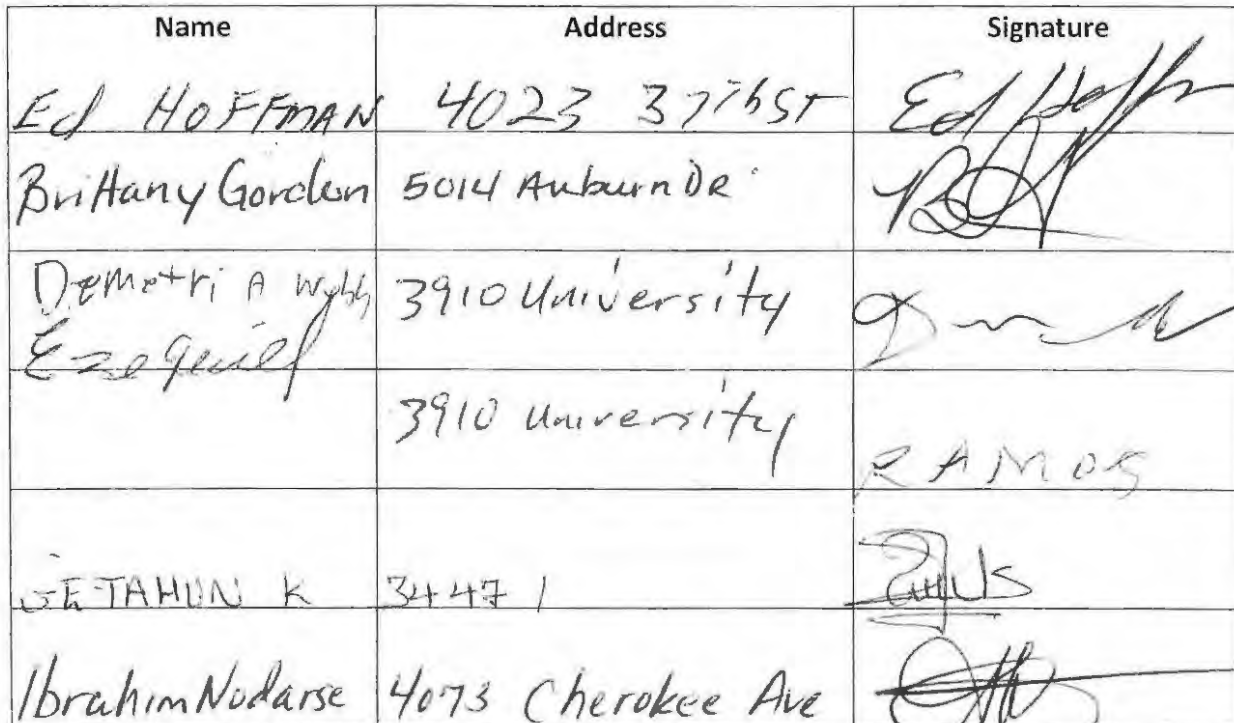 Name Address Signature
Ed HOFFMAN 4023 37th ST Ed Hoffm
Brittany Gordon 5014 Auburn DR
Demetri A 3910 University
Ezequiel
3910 University RAMOS
GETAHUN K 3447 1
Ibrahim Nodarse 4073 Cherokee Ave